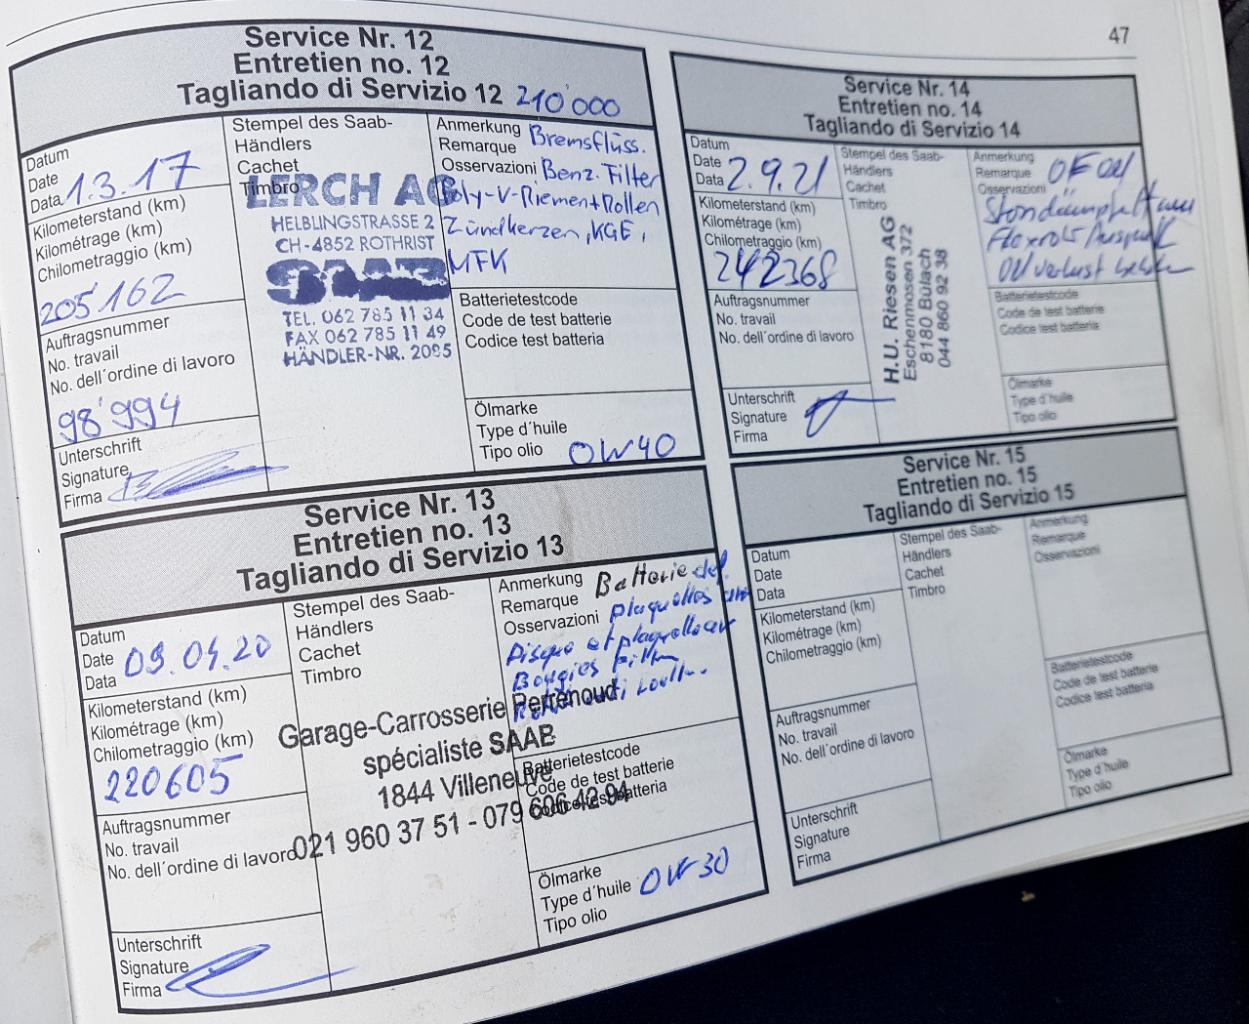 47
Service Nr. 12
Entretien no. 12
Tagliando di Servizio 12 210'000
Datum
Date
Data 1.3.17
Kilometerstand (km)
Kilométrage (km)
Chilometraggio (km)
205'162
Auftragsnummer
No. travail
No. dell´ordine di lavoro
98'994
Unterschrift
Signature
Firma
Stempel des Saab-
Händlers
Cachet
Timbro
LERCH AG
HELBLINGSTRASSE 2
CH-4852 ROTHRIST
SAAB
TEL. 062 785 11 34
FAX 062 785 11 49
HÄNDLER-NR. 2085
Anmerkung Bremsflüss.
Remarque
Osservazioni Benz. Filter
Poly-V-Riemen+Rollen
Zündkerzen, KGE,
MFK
Batterietestcode
Code de test batterie
Codice test batteria
Ölmarke
Type d´huile
Tipo olio 0W40
Service Nr. 13
Entretien no. 13
Tagliando di Servizio 13
Datum
Date 09.04.20
Data
Kilometerstand (km)
Kilométrage (km)
Chilometraggio (km)
220605
Auftragsnummer
No. travail
No. dell´ordine di lavoro
Unterschrift
Signature
Firma
Stempel des Saab-
Händlers
Cachet
Timbro
Garage-Carrosserie Perrenoud
spécialiste SAAB
1844 Villeneuve
021 960 37 51 - 079 606 42 94
Anmerkung Batterie def.
Remarque
Osservazioni plaquettes
Disque et plaquettes
Bougies
Batterietestcode
Code de test batterie
Codice test batteria
Ölmarke
Type d´huile 0W30
Tipo olio
Service Nr. 14
Entretien no. 14
Tagliando di Servizio 14
Datum
Date 2.9.21
Data
Kilometerstand (km)
Kilométrage (km)
Chilometraggio (km)
242368
Auftragsnummer
No. travail
No. dell´ordine di lavoro
Unterschrift
Signature
Firma
Stempel des Saab-
Händlers
Cachet
Timbro
H.U. Riesen AG
Eschenmosen 372
8180 Bülach
044 860 92 38
Anmerkung
Remarque
Osservazioni
Flexrohr Auspuff
Batterietestcode
Code de test batteria
Codice test batteria
Ölmarke
Type d´huile
Tipo olio
Service Nr. 15
Entretien no. 15
Tagliando di Servizio 15
Datum
Date
Data
Kilometerstand (km)
Kilométrage (km)
Chilometraggio (km)
Auftragsnummer
No. travail
No. dell´ordine di lavoro
Unterschrift
Signature
Firma
Stempel des Saab-
Händlers
Cachet
Timbro
Anmerkung
Remarque
Osservazioni
Batterietestcode
Code de test batteria
Codice test batteria
Ölmarke
Type d´huile
Tipo olio